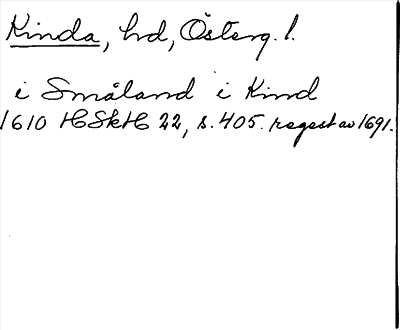 Kinda, hd, Österg. l.
i Småland i Kind
1610 HSkH 22, s. 405. regest av 1691.